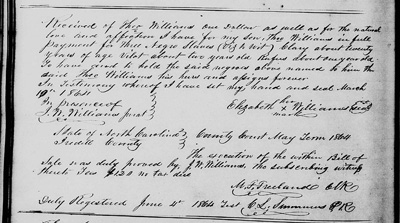 Received of Theo Williams one Dollar as well as for the natural
love and affection I have for my son, Theo Williams in full
payment for three Negro Slaves (Viz to wit) Clary about twenty
years of age Vilet about two years old Rufus about one year old
To have and to hold the said negroes above named to him the
said Theo Williams his heirs and assigns forever
In Testimony whereof I have set my hand and seal March
19th 1864
In presence of
J. W. Williams Jurat
Elizabeth her x mark Williams Seal
State of North Carolina
Iredell County
County Court May Term 1864
The execution of the within Bill of
Sale was duly proved by J. W. Williams, the subscribing witness
thereto Fee $1.20 no tax due
M. Freeland Clk
Duly Registered June 4th 1864 Test C. L. Summers P.R.